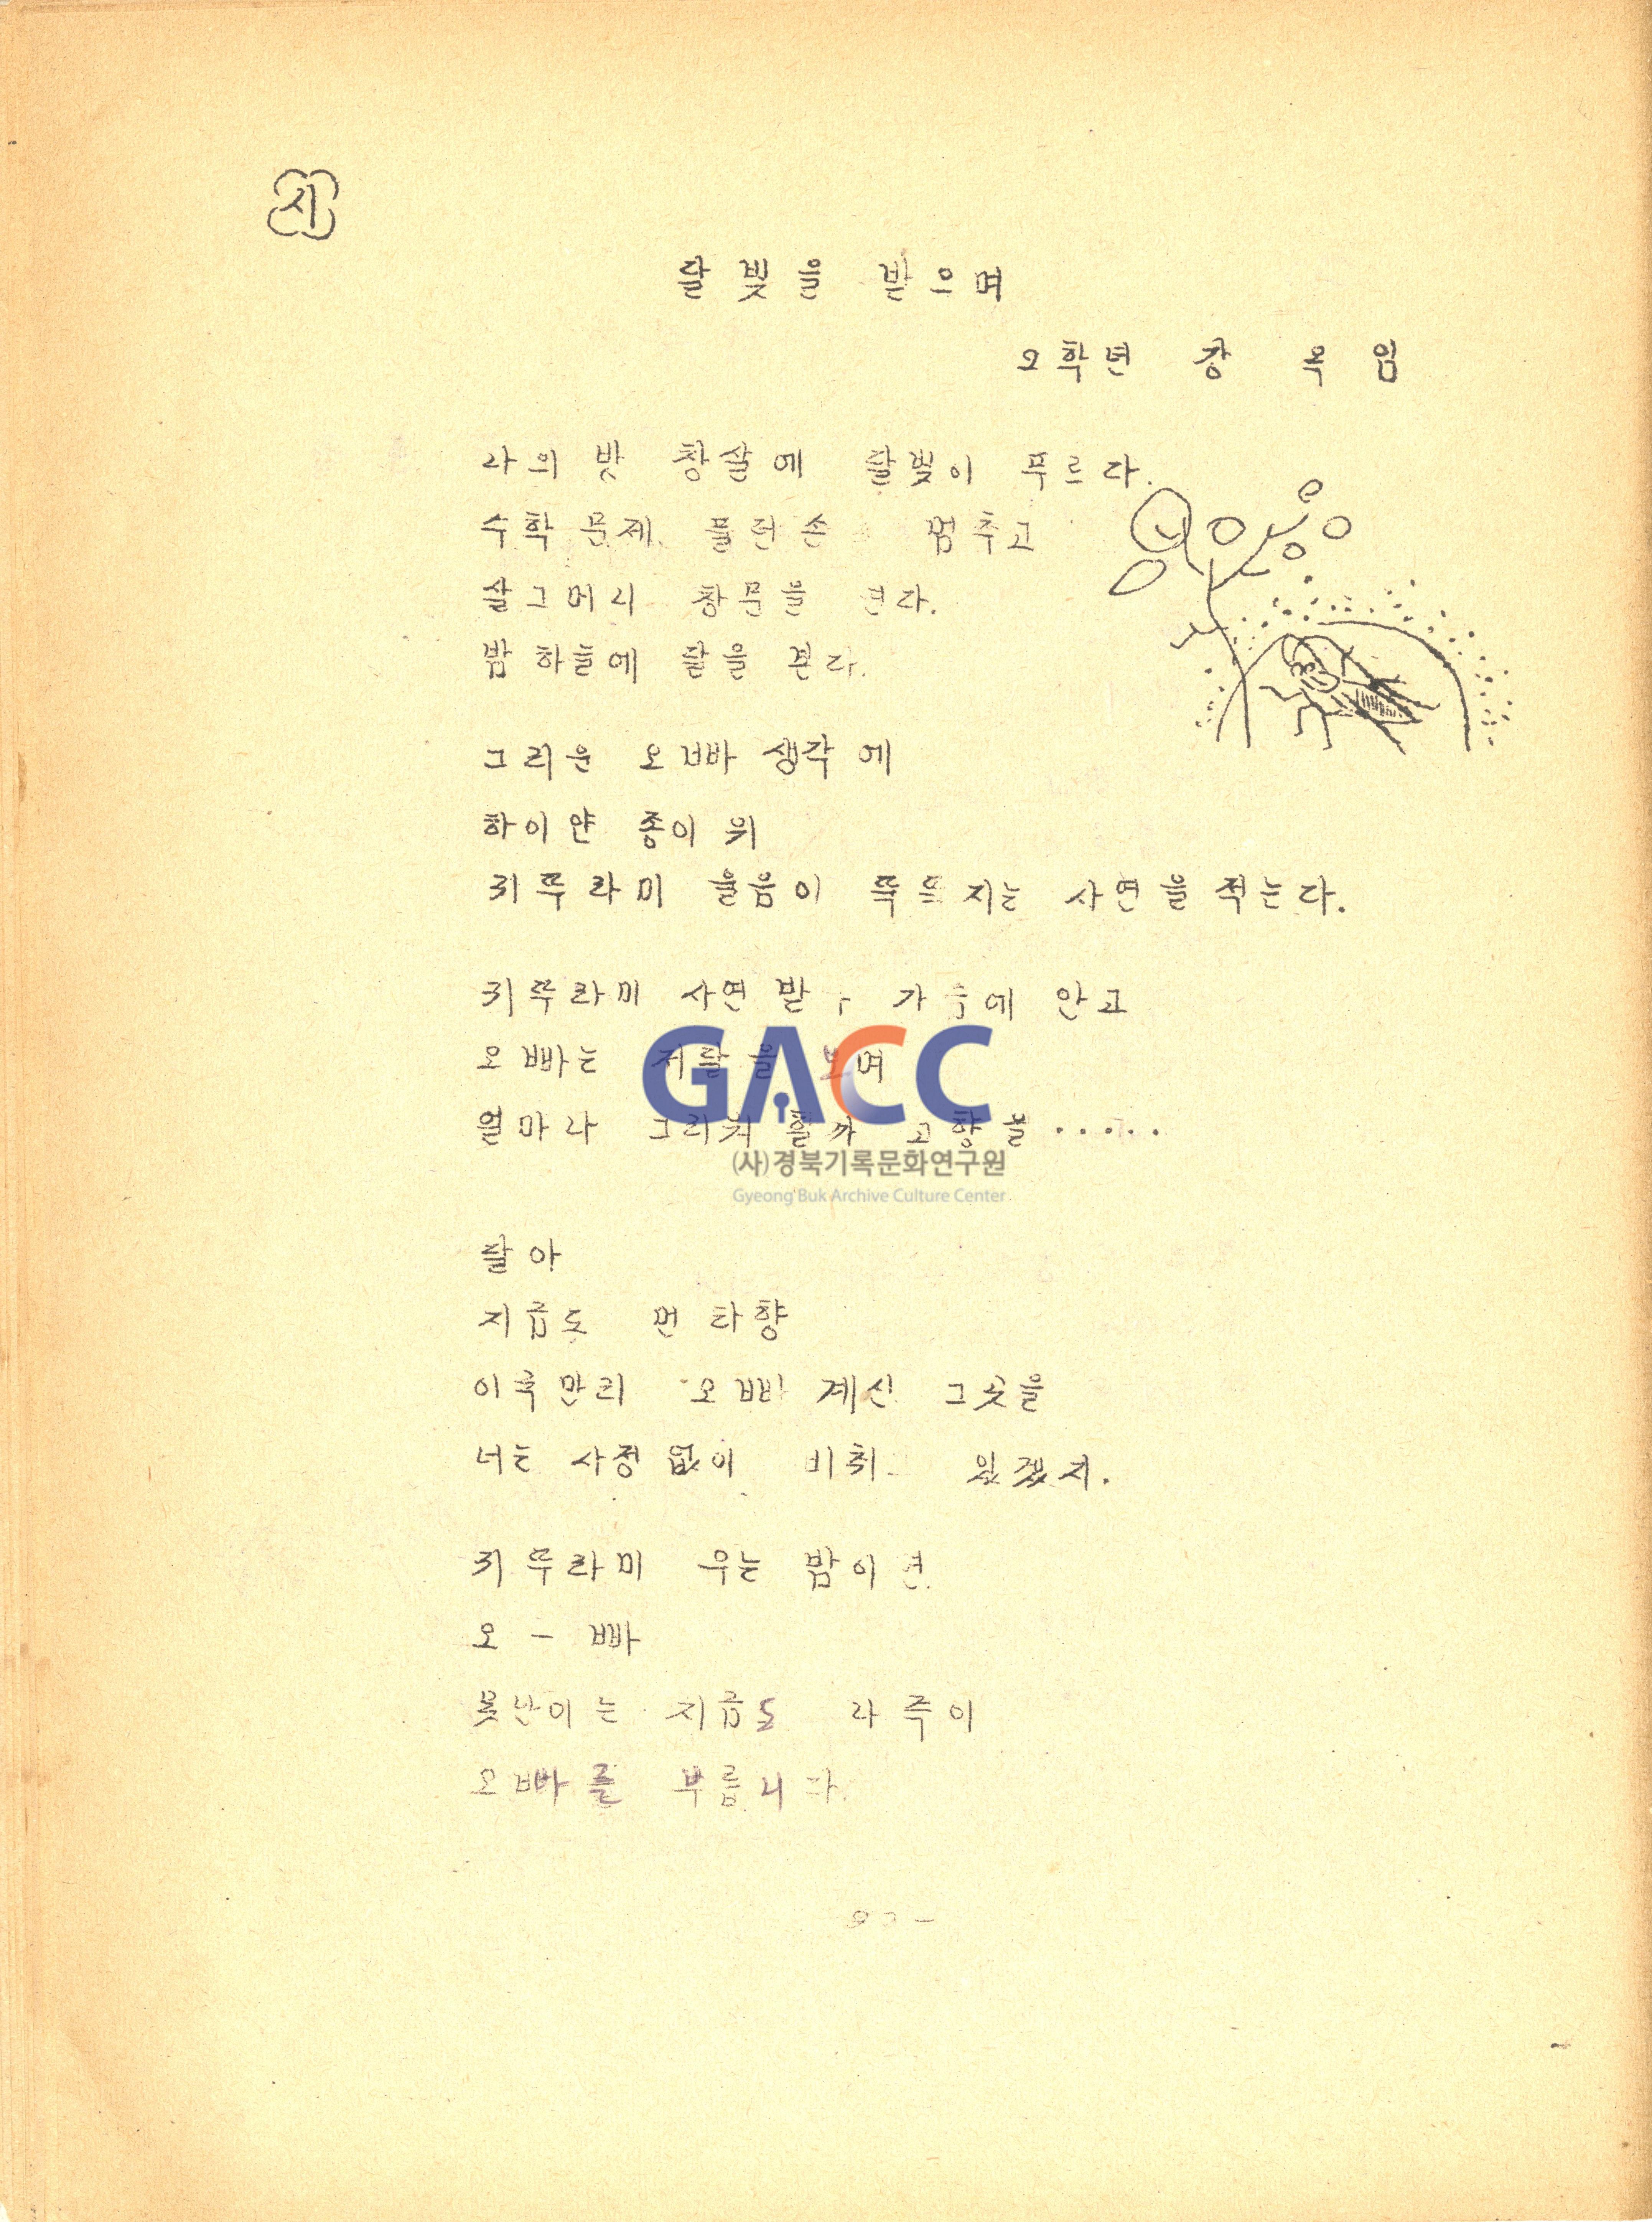 시
달빛을 받으며
2학년 강 옥 임
나의 방 창살에 달빛이 푸르다.
수학 문제 풀던 손 멈추고
살그머니 창문을 연다.
밤 하늘에 달을 본다.
그리운 오빠 생각에
하이얀 종이 위
귀뚜라미 울음이 뚝뚝 지는 사연을 적는다.
귀뚜라미 사연 받아 가슴에 안고
오빠는 저 달을 보며
얼마나 그리워 할까 고향을 .....
GACC
(사)경북기록문화연구원
Gyeong Buk Archive Culture Center
달아
지금도 먼 타향
이국만리 오빠 계신 그곳을
너는 사정없이 비춰 있겠지.
귀뚜라미 우는 밤이면
오 - 빠
못난이는 지금도 나즉이
오빠를 부릅니다.